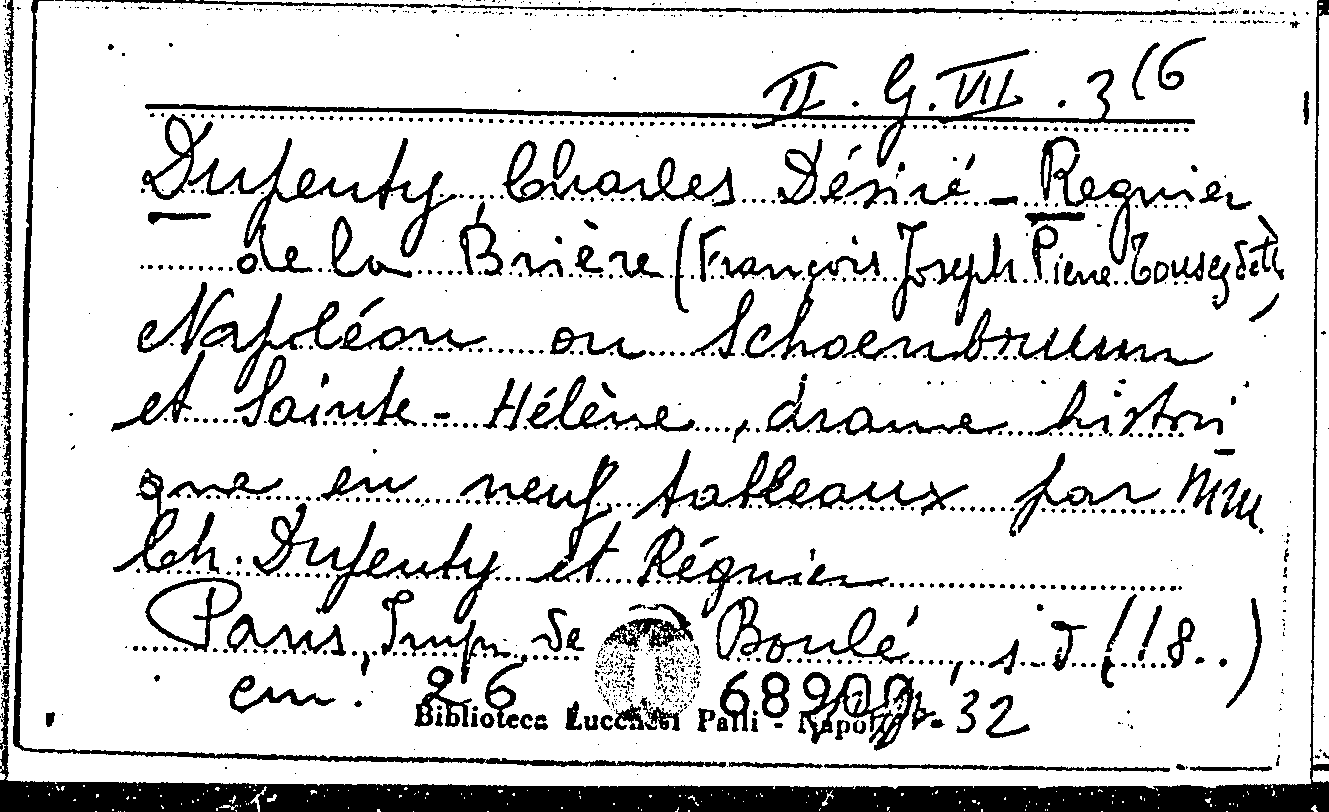 II. G. VII. 316
Dupeuty, Charles Désiré - Regnier
de la Brière (François Joseph Pierre Tousez dett.),
Napoléon ou Schoenbrunn
et Sainte-Hélène, drame histori-
que en neuf tableaux par MM
Ch. Dupeuty et Régnier
Paris, Imp. de Boulé, s. d (18..)
cm. 26 68900 32
Biblioteca Lucchesi Palli - Napoli